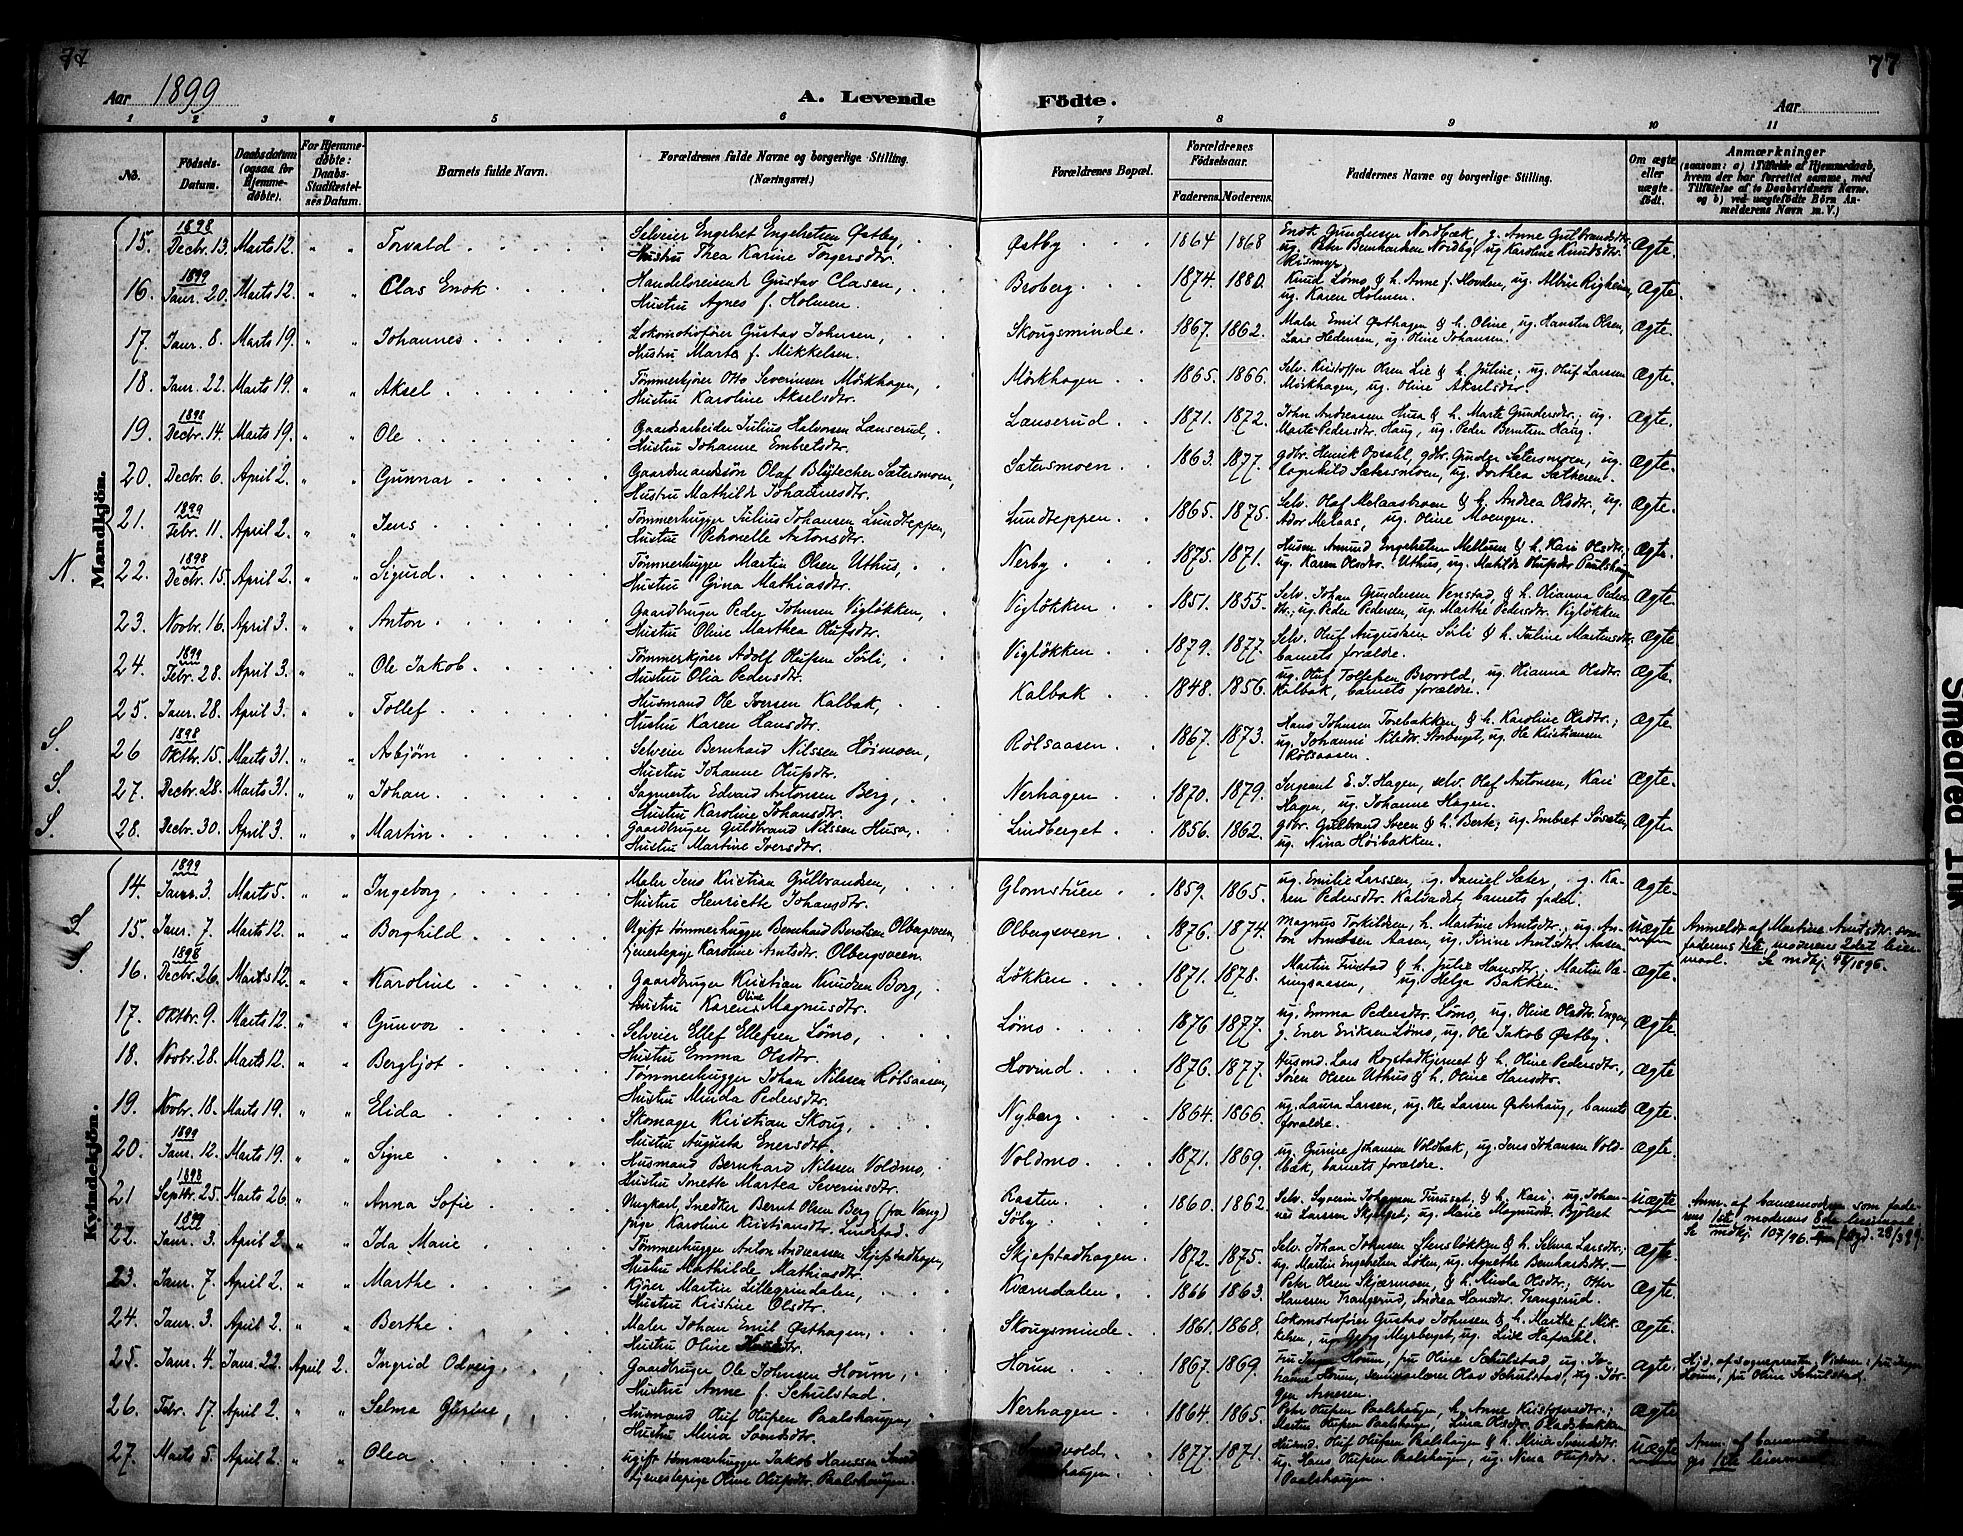 77
77
Aar 1899
A. Levende Födte.
Aar
1 2 3 4 5 6 7 8 9 10 11
No.
Födsels-Datum.
Daabsdatum (ogsaa for Hjemme-døbte).
For Hjemme-døbte: Daabs-Stadfæstel-ses Datum.
Barnets fulde Navn.
Forældrenes fulde Navne og borgerlige Stilling. (Næringsvei.)
Forældrenes Bopæl.
Forældrenes Födselsaar.
Faderens. Moderens.
Faddernes Navne og borgerlige Stilling.
Om ægte eller uægte födt.
Anmærkninger (saasom: a) i Tilfælde af Hjemmedaab, hvem der har forrettet samme, med Tilföielse af to Daabsvidners Navne. og b) ved uægtefödte Börn Anmelderens Navn m. V.)
Mandkjön.
15. 1898 Decbr. 13. Marts 12. " " Torvald Selveier Engebret Engebretsen Østby, Hustru Thea Karine Torgersdtr. Østby 1864 1868 Ægte.
16. 1899 Janr. 20. Marts 12. " " Clas Enok Handelsreisende Gustav Clasen, Hustru Agnes f. Holmen. Broberg 1874. 1880. Knud Lømo & h. Anne f. Hovden, ug. Karen Holmen. Ægte.
17. Janr. 8. Marts 19. " " Johannes Lokomotivfører Gustav Johnsen, Hustru Marte f. Mikkelsen. Skougsminde. 1867. 1862. Maler Emil Østhagen & h. Oline, ug. Hansten Olsen, Lars Hedensen, ug. Oline Johansen. Ægte.
18. Janr. 22. Marts 19. " " Aksel Tømmerkjører Otto Severinsen Mörkhagen, Hustru Karoline Akselsdtr. Mörkhagen 1865. 1866. Selv. Kristoffer Olsen Lie & h. Juline; ug. Oluf Larsen Mörkhagen, ug. Oline Akselsdtr. Ægte.
19. 1898 Decbr. 14. Marts 19. " " Ole Gaardsarbeider Julius Halvorsen Lænserud, Hustru Johanne Embretsdtr. Lænserud 1871. 1872. John Andreassen Hua & h. Marte Gundersdtr.; ug. Marte Pedersdtr. Haug, ug. Peder Berntsen Haug. Ægte.
20. Decbr. 6. April 2. " " Gunnar Gaardmandssøn Olaf Blÿtecher Sætersmoen, Hustru Mathilde Johannesdtr. Sætersmoen 1863. 1877. Ægte.
21. 1899 Febr. 11. April 2. " " Jens Tømmerhugger Julius Johansen Lundteppen, Hustru Petronelle Antonsdtr. Lundteppen 1865. 1875. Selv. Olaf Melaasbroen & h. Andrea Olsdtr., ug. Ador Melaas, ug. Oline Moengen. Ægte.
N. 22. 1898 Decbr. 15. April 2. " " Sigurd Tømmerhugger Martin Olsen Uthus Hustru Gina Mathiasdtr. Nerby 1875. 1871. ug. Karen Olsdtr. Uthus, ug. Matilde Olufsdtr Paalshaug Ægte.
23. Novbr. 16. April 3. " " Anton Gaardbruger Peder Johnsen Vigløkken, Hustru Oline Marthea Olufsdtr. Vigløkken 1851. 1855. Selv. Johan Gundersen Venstad, & h. Olianna Pedersdtr.; ug. Peder Pedersen, ug. Marthe Pedersdtr. Vigløkken Ægte
24. 1899 Febr. 28. April 3. " " Ole Jakob Tømmerkjører Adolf Olufsen Sörli, Hustru Olia Pedersdtr. Vigløkken 1879. 1877. Selv. Oluf Augustsen Sörli & h. Juline Martinsdtr, barnets forældre. Ægte
25. Janr. 28. April 3. " " Tollef Husmand Ole Iversen Kalbæk, Hustru Karen Hansdtr. Kalbæk 1848. 1856. ug. Oluf Tollefsen Brovold, ug. Hianna Olsdtr. Kalbæk, barnets forældre. Ægte.
S. 26 1898 Oktbr. 15. Marts 31. " " Asbjörn Selveier Bernhard Nilssen Höimoen, Hustru Johanne Olufsdtr. Rølsaasen 1867. 1873. Hans Johnsen Torebakken, & h. Karoline Olsdtr.; ug. Ole Kristiansen Rølsaasen. Ægte.
S. 27. Decbr. 28. Marts 31. " " Johan. Sagmester Edvard Antonsen Berg, Hustru Karoline Johansdtr. Nerhagen 1870. 1879. Sergeant E. J. Hagen, selv. Olaf Antonsen, Kari Hagen, ug. Johanne Hagen. Ægte.
S. 28. Decbr. 30. April 3. " " Martin Gaardbruger Guldbrand Nilssen Husa, Hustru Martine Iversdtr. Lindberget 1856. 1862. gbr. Gulbrand Sveen & h. Berte; ug. Embret Søsæter, ug. Nina Höibakken. Ægte
Kvindekjön.
14. 1899 Janr. 3. Marts 5. " " Ingeborg Maler Jens Kristian Gulbrandsen, Hustru Henriette Johansdtr. Glomstuen 1859. 1865. ug. Emilie Larssen, ug. Daniel Sæter, ug. Karen Pedersdtr. Kaldadet, barnets fader. Ægte
S. 15. Janr. 7. Marts 12. " " Borghild Ugift tømmerhugger Bernhard Berntsen Olbergsveen, tjenestepige Karoline Arntsdtr. Olbergsveen. Olbergsveen 1876. 1874. Magnus Torkildsen, h. Martine Arntsdtr., ug. Anton Arntsen Aasen, ug. Sirine Arntsdtr. Aasen. Uægte Anmeldt af Martine Arntsdtr. som faderens 1ste, moderens 2det leiermaal. Se mdkj. 48/1896.
S. 16. 1898 Decbr. 26. Marts 12. " " Karoline Gaardbruger Kristian Knudsen Borg, Hustru Karen Oline Magnusdtr. Løkken 1871. 1878. Martin Finstad & h. Julie Hansdtr.; ug. Helga Bakken. Ægte.
17. Oktbr. 9. Marts 12. " " Gunvor Selveier Ellef Ellefsen Lömo, Hustru Emma Olsdtr. Lömo 1876 1877. ug. Emma Pedersdtr. Lömo, ug. Oline Olsdtr. Engen, g. Ener Eriksen Lömo, ug. Ole Jakob Østby. Ægte
18. Novbr. 28. Marts 12. " " Bergljot Tømmerhugger Johan Nilssen Rølsaasen, Hustru Minda Pedersdtr. Hovind 1876. 1877. Husmd. Lars Rogstadkjernet & h. Oline Pedersdtr., Søren Olsen Uthus & h. Oline Hansdtr. Ægte
19. Novbr. 18. Marts 19. " " Elida Skomager Kristian Skoug, Hustru Augusta Enersdtr. Nyberg 1864. 1866. ug. Laura Larsen, ug. Ole Larsen Østerhaug, barnets forældre. Ægte.
20. 1899 Janr. 12. Marts 19. " " Signe Husmand Bernhard Nilssen Voldmo, Hustru Jonette Martea Severinsdtr. Voldmo 1871. 1869. ug. Gurine Johansen Voldbæk, ug. Jens Johansen Voldbæk, barnets forældre. Ægte.
21 1898 Septbr. 25. Marts 26. " " Anna Sofie Ungkarl, Snedker Bernt Olsen Berg (fra Vang) pige Karoline Kristiansdtr. Lundstad. Rasten. Söby. 1860. 1862. ug. Johannes Larssen Skjefset; ug. Marie Magnusdtr Bjölset Uægte Anm. af barnemoderen som faderens 1ste moderens 2det leiermaal. Se mdkj. 109/96.
22. 1899 Janr. 3. April 2. " " Ida Marie Tømmerhugger Anton Andreassen Skjefstadhagen, Hustru Mathilde Mathiasdtr. Skjefstadhagen 1872. 1875. Selv. Johan Johansen Stensløkken & h. Selma Larsdtr.; ug. Martin Engebretsen Löten, ug. Agnethe Bernhardsdtr. Ægte.
23. Janr. 7. April 2. " " Marthe Kjører Martin Lillegrindalen, Hustru Kristine Olsdtr. Kværndalen 1866 1863. Peter Olsen Skjærmoen, & h. Minda Olsdtr.; Otter Hanssen Trangsrud, Andrea Hansdtr. Trangsrud. Ægte.
24. Janr. 3. April 2. " " Berthe Maler Johan Emil Østhagen, Hustru Oline Skougsminde. 1861. 1868. Lokomotivfører Gustav Johnsen & h. Marthe f. Mikkelsen, ug. Georg Myrberget, ug. Lise Hafsahl. Ægte.
25. Janr. 4. Janr. 22. April 2. Ingrid Odveig, Gaardbruger Ole Johnsen Houm, Hustru Anne f. Schulstad. Houm 1867. 1869. Fru Inger Houm, fru Oline Schulstad, ug. Johanne Houm, Olav Schulstad, ug. Jörgen Arnesen. Ægte. Hjd. af sogneprest Vidnes: fru Inger Houm, fru Oline Schulstad.
26. Febr. 17. April 2. " " Selma Gustine, Husmand Oluf Olufsen Paalshaugen, Hustru Mina Svendsdtr. Nerhagen 1864. 1865. Petr. Olufsen Paalshaugen, h. Anne Kristofersdtr.; Martin Olufsen Paalshaugen, Lina Olsdtr. Øladsbakken Ægte
27. Marts 5. April 2. " " Olea Ugift tømmerhugger Jakob Hanssen tjenestepige Oline Olufsdtr. Paalshaugen. 1877. 1871. Husmd. Oluf Olufsen Paalshaugen & h. Mina Svendsdtr. ug. Hans Olufsen Paalshaugen, ug. Nina Olufsdtr. Paalshaugen Uægte Anm. af barnemoderen 1ste leiermaal
Smedred Ink